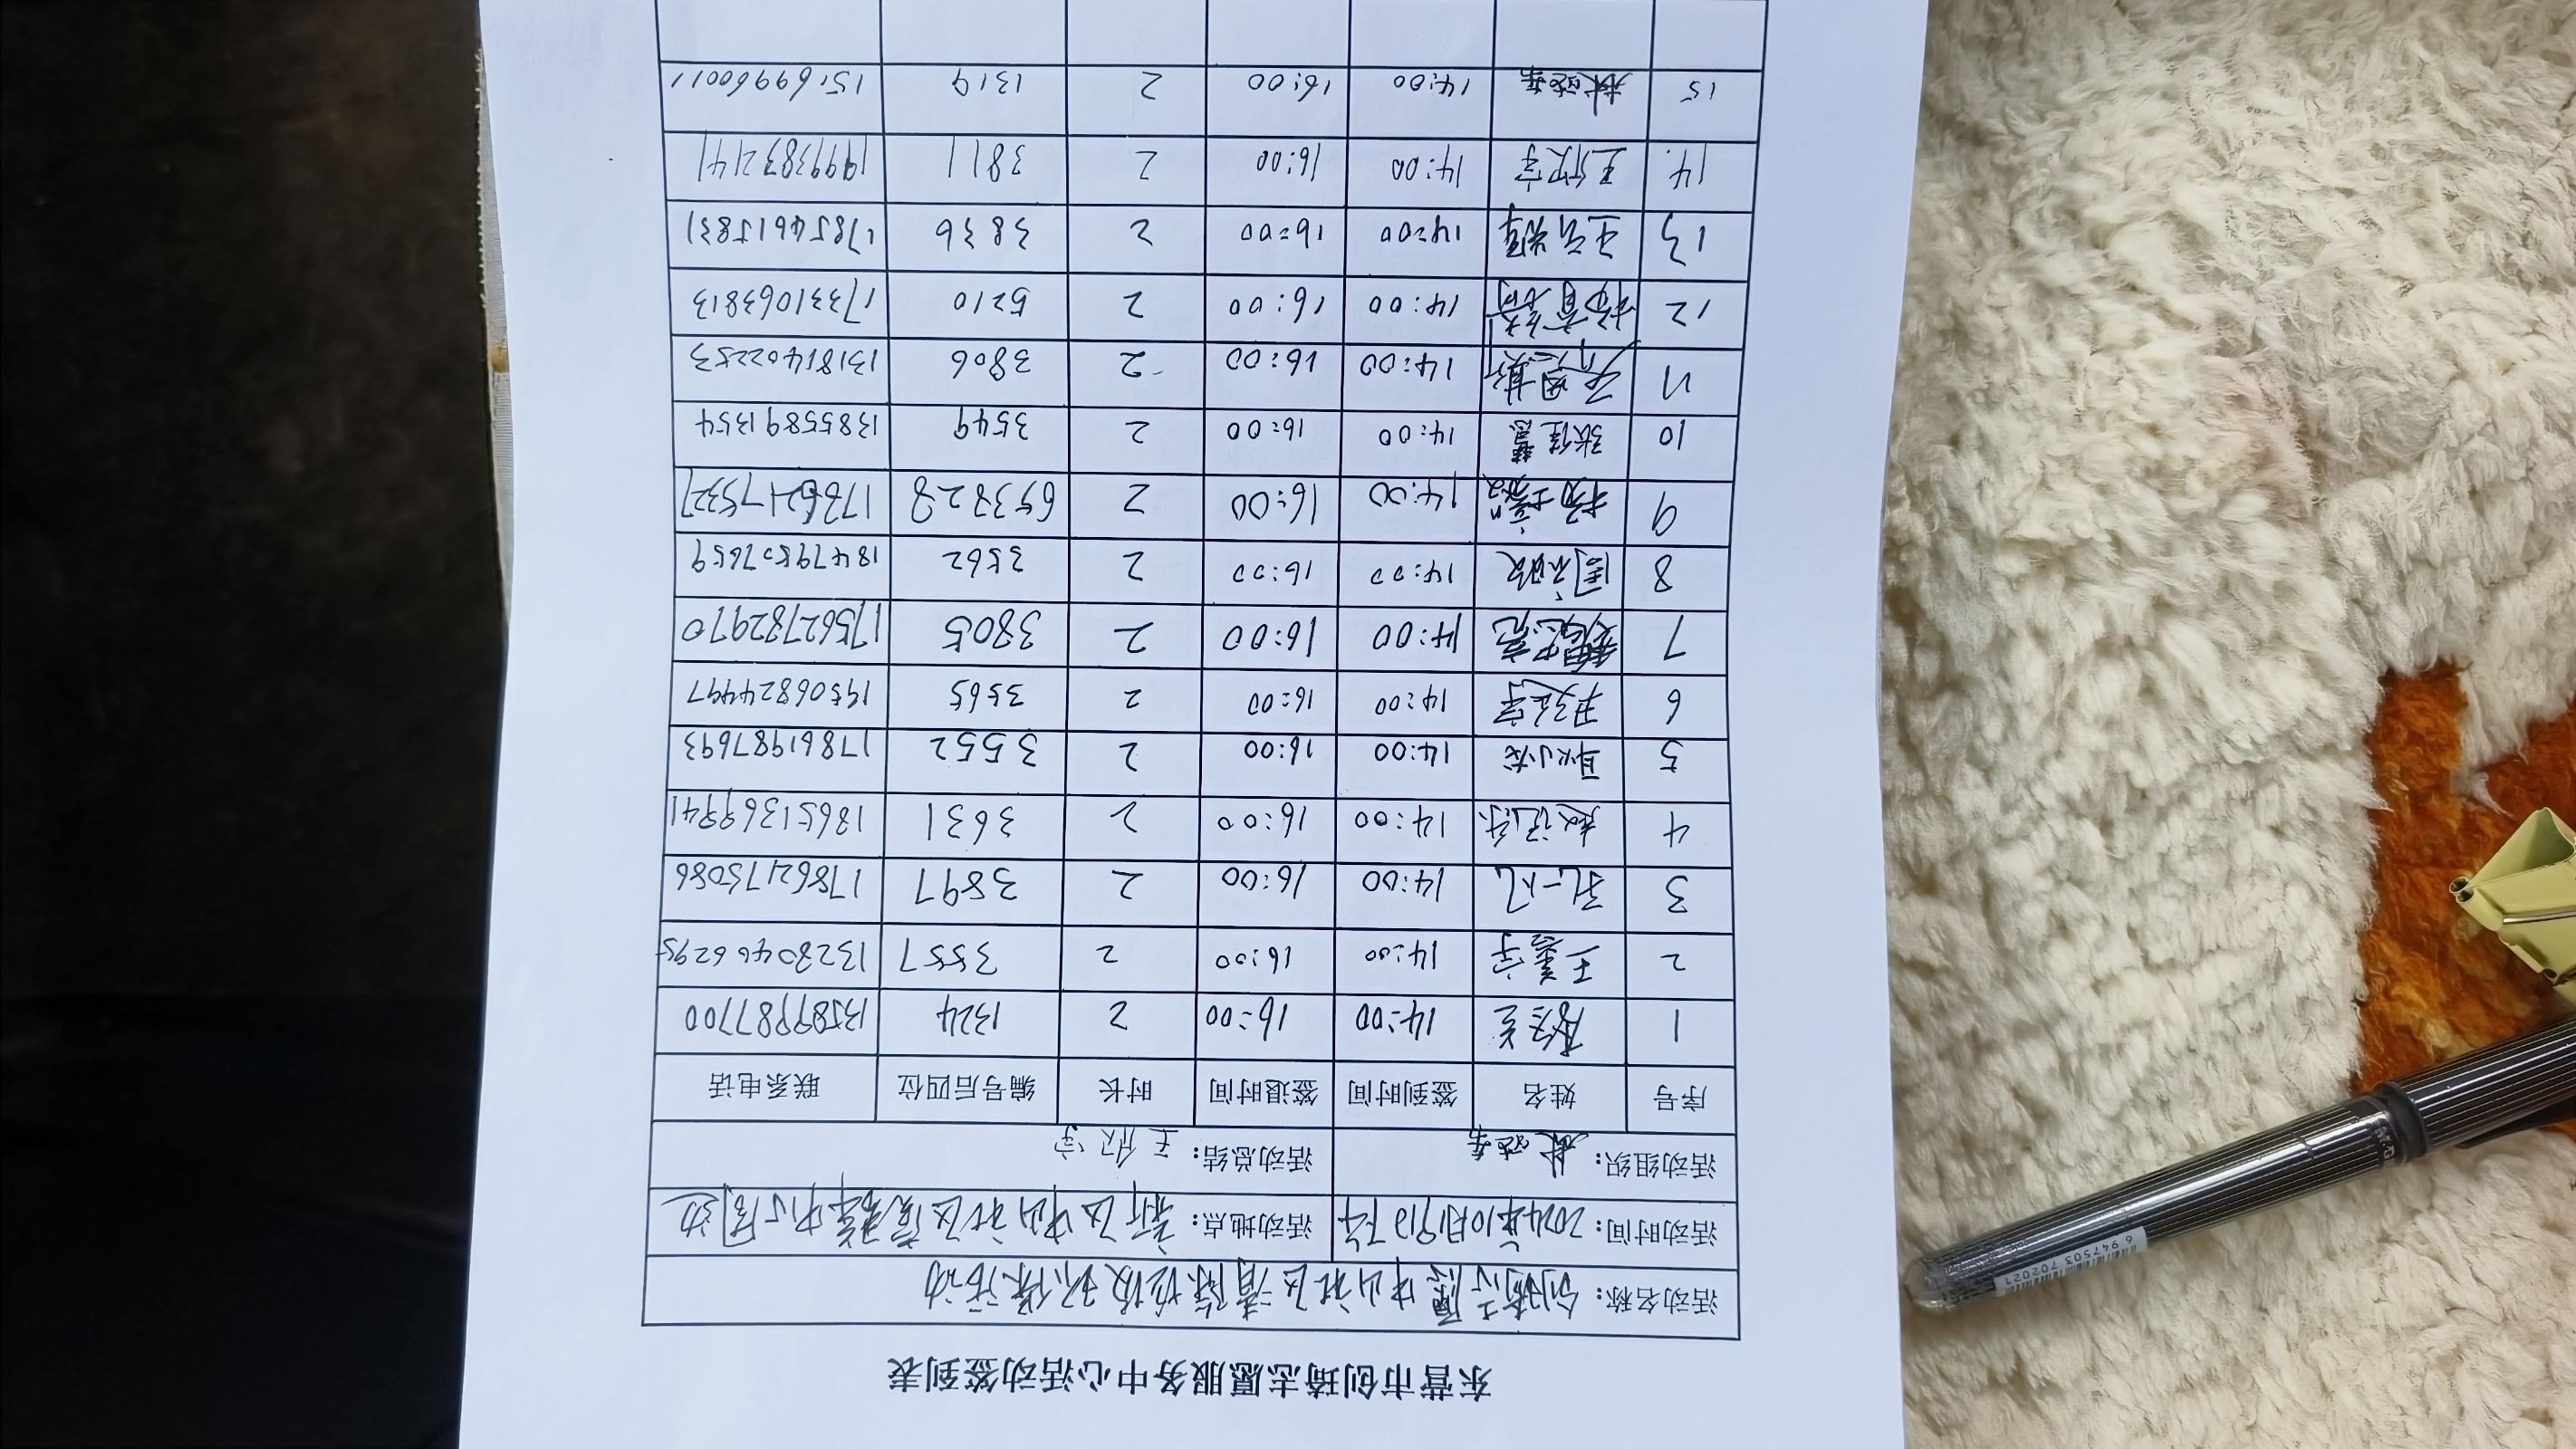 东营市创琦志愿服务中心活动签到表
活动名称: 创琦志愿中山社区清除垃圾环保活动
活动时间: 2024年10月19日下午 活动地点: 新区中山社区商务中心周边
活动组织: 活动总结: 王欣宇
序号 姓名 签到时间 签退时间 时长 编号后四位 联系电话
1 14:00 16:00 2 1324 13589987700
2 王嘉宇 14:00 16:00 2 3557
3 孔一凡 14:00 16:00 2 3897 17862175086
4 14:00 16:00 2 3631
5 耿小龙 14:00 16:00 2 3552 17861987693
6 14:00 16:00 2 3565 19506824497
7 14:00 16:00 2 3805 17562782970
8 14:00 16:00 2 3562 18479507659
9 14:00 16:00 2
10 张佳慧 14:00 16:00 2 3549 13855891354
11 14:00 16:00 2 3806 13181402253
12 14:00 16:00 2 5210 17331063813
13 14:00 16:00 2 3836 17854615831
14 王欣宇 14:00 16:00 2 3811 19993832141
15 14:00 16:00 2 1319 15169960011
6 947503 702021